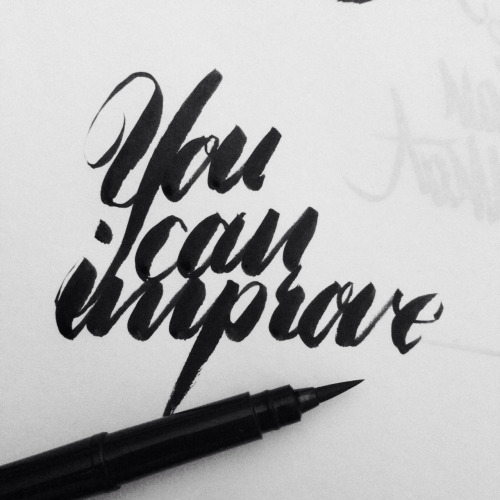 You
can
improve